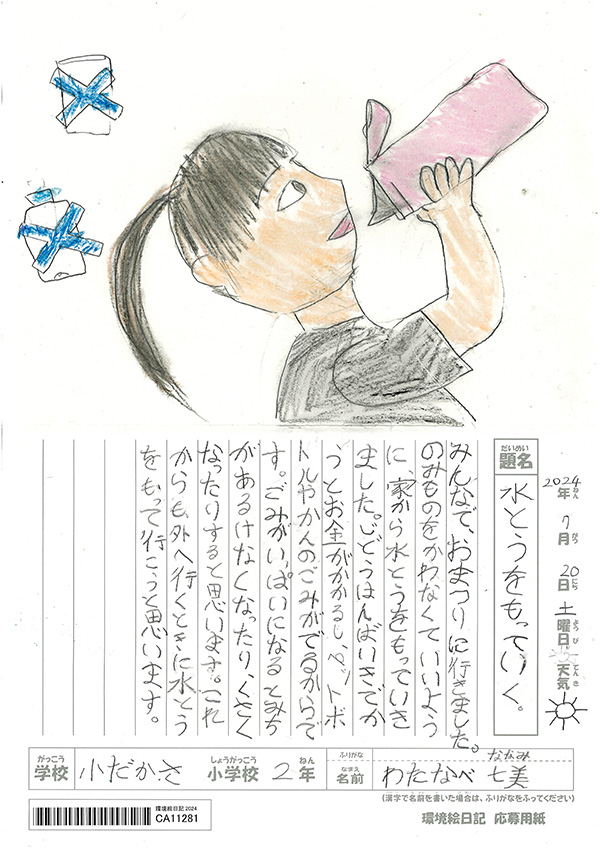 2024年 7月 20日 土曜日 天気
ねん がつ にち ようび てんき
だいめい
題名
水とうをもっていく。
みんなで、おまつりに行きました。
のみものをかわなくていいよう
に、家から水とうをもっていき
ました。じどうはんばいきでか
うとお金がかかるし、ペットボ
トルやかんのごみがでるからで
す。ごみがいっぱいになるとみち
があるけなくなったり、くさく
なったりすると思います。これ
からも、外へ行くときに水とう
をもって行こうと思います。
がっこう しょうがっこう ねん
学校 小だかさ 小学校 2年
ふりがな ななみ
なまえ
名前 わたなべ 七美
(漢字で名前を書いた場合は、ふりがなをふってください)
環境絵日記2024
CA11281
環境絵日記 応募用紙